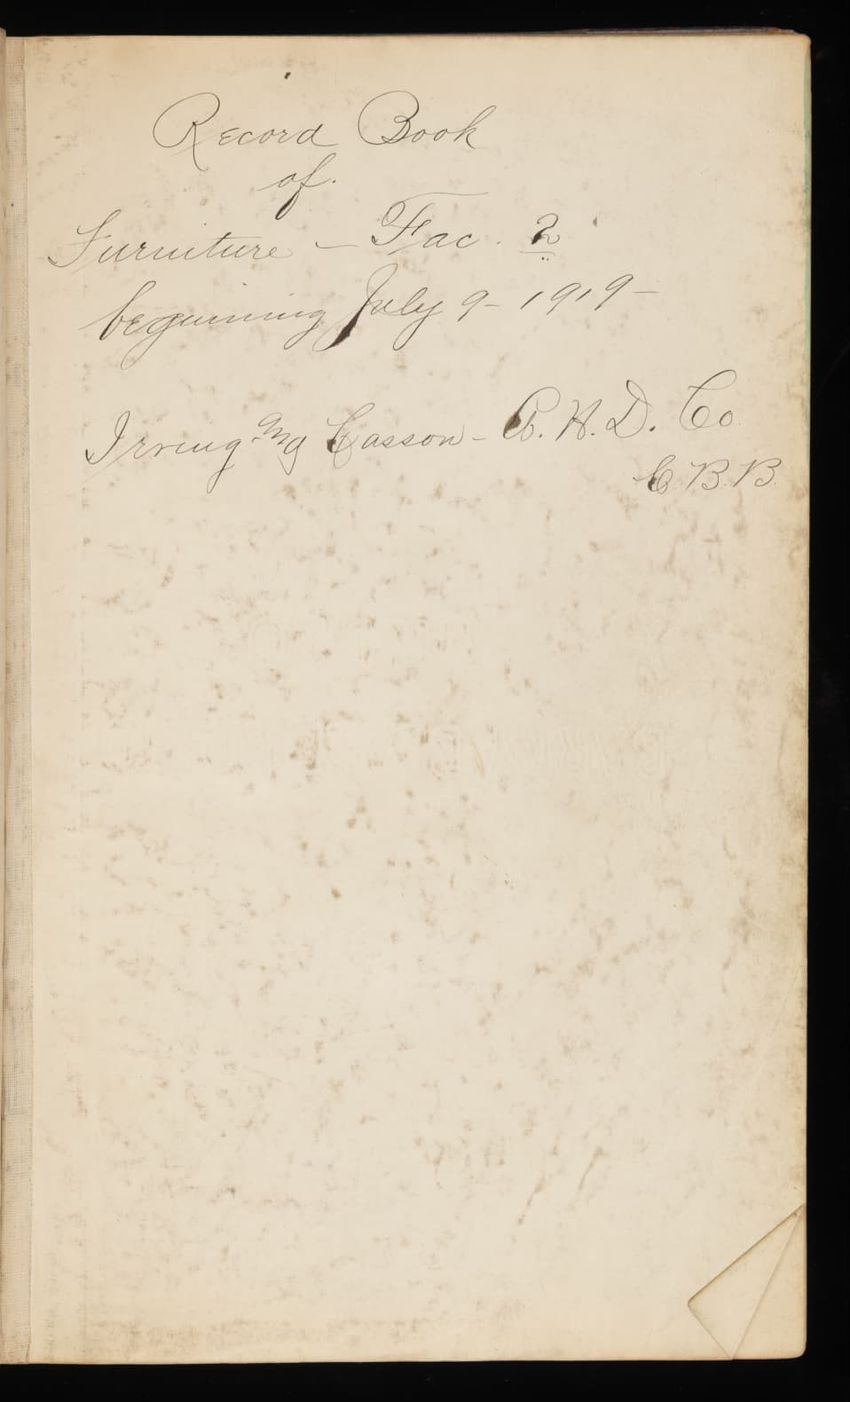 Record Book
of.
Furniture — Fac. 2
beginning July 9 - 1919 -
Irving and Casson - A. H. D. Co
C. B. B.